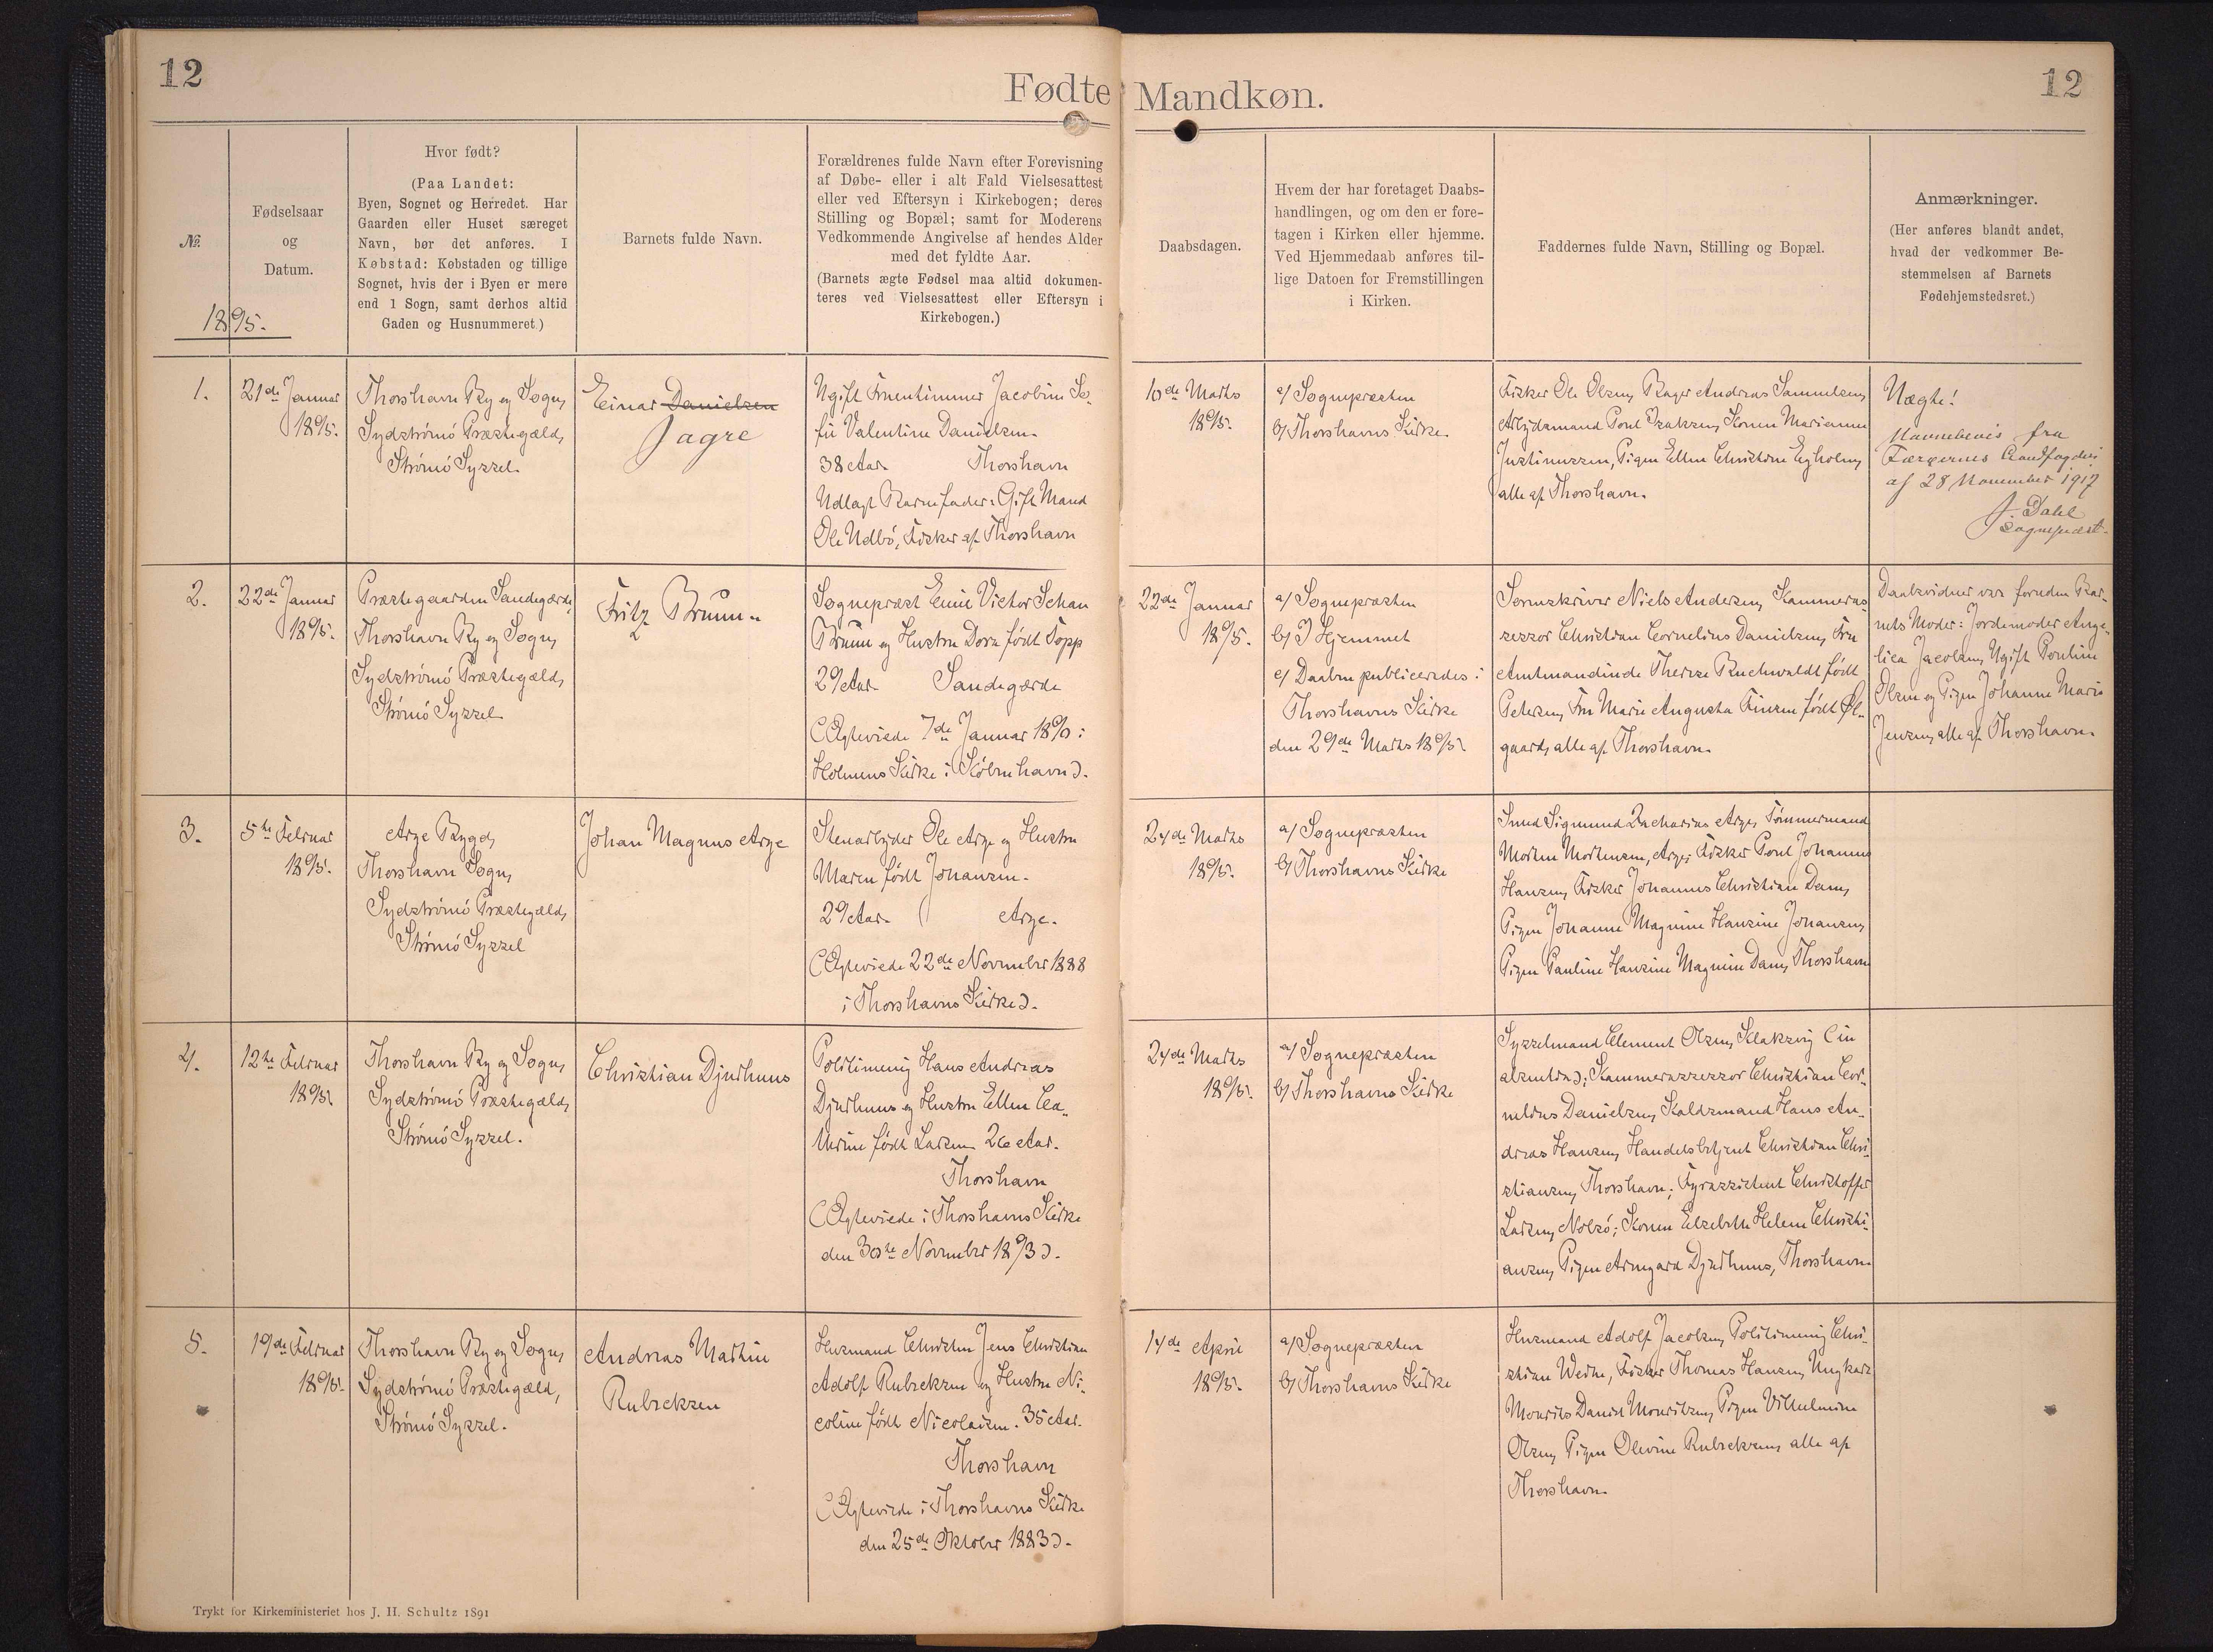 12
Fødte
Mandkøn.
12
№.
1895.
Fødselsaar
og
Datum.
Hvor født?
(Paa Landet:
Byen, Sognet og Herredet. Har
Gaarden eller Huset særeget
Navn, bør det anføres. I
Købstad: Købstaden og tillige
Sognet, hvis der i Byen er mere
end 1 Sogn, samt derhos altid
Gaden og Husnummeret)
Barnets fulde Navn.
Forældrenes fulde Navn efter Forevisning
af Døbe- eller i alt Fald Vielsesattest
eller ved Eftersyn i Kirkebogen; deres
Stilling og Bopæl; samt for Moderens
Vedkommende Angivelse af hendes Alder
med det fyldte Aar.
(Barnets ægte Fødsel maa altid dokumen-
teres ved Vielsesattest eller Eftersyn i
Kirkebogen.)
Daabsdagen.
Hvem der har foretaget Daabs-
handlingen, og om den er fore-
tagen i Kirken eller hjemme.
Ved Hjemmedaab anføres til-
lige Datoen for Fremstillingen
i Kirken.
Faddernes fulde Navn, Stilling og Bopæl.
Anmærkninger.
(Her anføres blandt andet,
hvad der vedkommer Be-
stemmelsen af Barnets
Fødehjemstedsret.)
1.
21de Januar
1895.
Thorshavn By og Sogn,
Sydstrømø Præstegæld,
Strømø Syssel
Einar Danielsen
Jagre
Ugift Fruentimmer Jacobine So-
fie Valentine Danielsen
38 Aar Thorshavn
Udlagt Barnefader: Gift Mand
Ole Udbø, Fisker af Thorshavn
10de Marts
1895.
a/ Sognepræsten
b/ Thorshavns Kirke
Fisker Ole Olsen, Bager Andreas Samuelsen,
Arbejdsmand Poul Isaksen, Konen Marianne
Justinussen, Pigen Ellen Christine Egholm,
alle af Thorshavn.
Uægte!
Navnebevis fra
Færøernes Landfogderi
af 28 November 1917
J. Dahl
Sognepræst.
2.
22de Januar
1895.
Præstegaarden Sandegærde,
Thorshavn By og Sogn,
Sydstrømø Præstegæld,
Strømø Syssel
Fritz Bruun
Sognepræst Emil Victor Schau
Bruun og Hustru Dora født Topp
29 Aar Sandegærde
(Ægteviede 7de Januar 1890 i
Holmens Kirke i København).
22de Januar
1895.
a/ Sognepræsten
b/ I Hjemmet
c/ Daaben publiceredes i
Thorshavns Kirke
den 29de Marts 1895.
Sorenskriver Niels Andersen, Kammeras-
sessor Christian Cornelius Danielsen, Fru
Amtmandinde Therese Buchwaldt født
Petersen, Fru Marie Augusta Finsen født Øl-
gaard, alle af Thorshavn.
Daabsvidner var foruden Bar-
nets Moder: Jordemoder Ange-
lica Jacobsen, Ugift Pouline
Olsen og Pigen Johanne Marie
Jensen, alle af Thorshavn.
3.
5te Februar
1895.
Arge Bygd,
Thorshavn Sogn,
Sydstrømø Præstegæld,
Strømø Syssel
Johan Magnus Arge
Stenarbejder Ole Arge og Hustru
Maren født Johansen.
29 Aar Arge.
(Ægteviede 22de November 1888
i Thorshavns Kirke).
24de Marts
1895.
a/ Sognepræsten
b/ Thorshavns Kirke
Smed Sigmund Zacharias Arge, Tømmermand
Morten Mortensen, Arge; Fisker Poul Johannes
Hansen, Fisker Johannes Christian Dam,
Pigen Johanne Magnine Hansine Johansen,
Pigen Pauline Hansine Magnine Dam, Thorshavn
4.
12te Februar
1895.
Thorshavn By og Sogn,
Sydstrømø Præstegæld,
Strømø Syssel.
Christian Djurhuus
Politimening Hans Andreas
Djurhuus og Hustru Ellen Ca-
thrine født Larsen 26 Aar.
Thorshavn
(Ægteviede i Thorshavns Kirke
den 30te November 1893).
24de Marts
1895.
a/ Sognepræsten
b/ Thorshavns Kirke
Sysselmand Clement Olsen, Klaksvig (in
absentia); Kammerassessor Christian Cor-
nelius Danielsen, Skoldsmand Hans An-
dreas Hansen, Handelsbetjent Christian Chri-
stiansen, Thorshavn; Fyrassistent Christoffer
Larsen, Nolsø; Konen Elsebeth Helene Christi-
ansen, Pigen Armgard Djurhuus, Thorshavn
5.
19de Februar
1895.
Thorshavn By og Sogn,
Sydstrømø Præstegæld,
Strømø Syssel.
Andreas Martin
Rubeksen
Husmand Christen Jens Christian
Adolf Rubeksen og Hustru Ni-
coline født Nicolaisen. 35 Aar.
Thorshavn
(Ægteviede i Thorshavns Kirke
den 25de Oktober 1883).
14de April
1895.
a/ Sognepræsten
b/ Thorshavns Kirke
Husmand Adolf Jacobsen, Politimening Chri-
stian Weihe, Fisker Thomas Hansen, Ungkarl
Mourits David Mouritsen, Pigen Vilhelmine
Olsen, Pigen Olevine Rubeksen, alle af
Thorshavn.
Trykt for Kirkeministeriet hos J. H. Schultz 1891